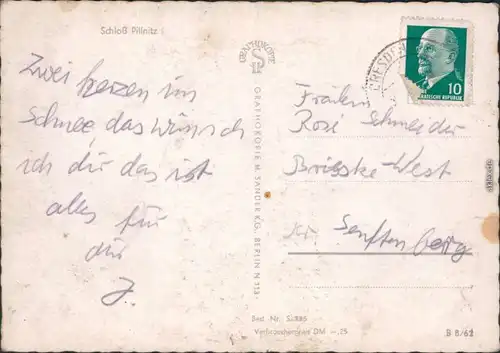 Schloß Pillnitz
Zwei herzen im
Schnee, das wünsch
ich dir das ist
alles für
dir
J.
GRAPHOKOPIE
GRAPHOKOPIE H. SANDER KG. BERLIN N 113
DRESDEN
10
DEMOKRATISCHE REPUBLIK
Fräulein
Rosi Schneider
Brieske-West
Kr. Senftenberg
Best. Nr.
Verbraucherpreis DM -,15
B 8/62